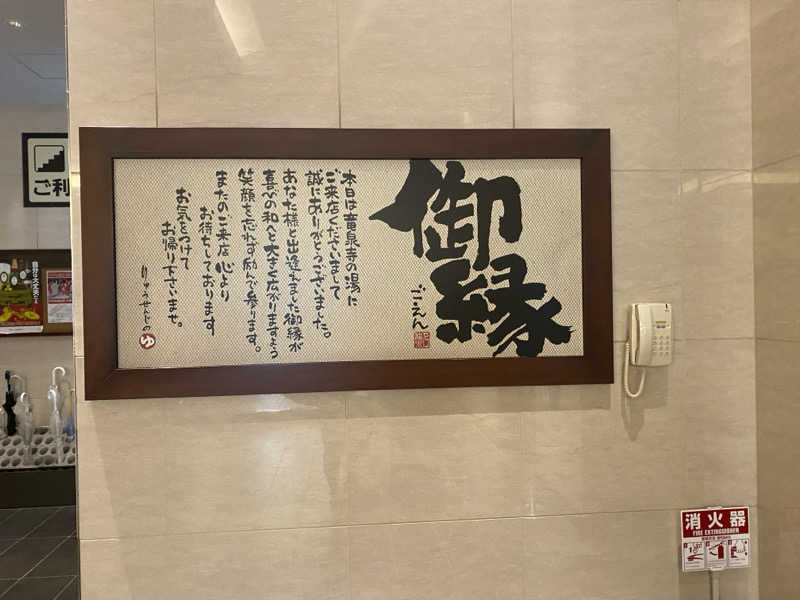 御縁
ごえん
本日は竜泉寺の湯に
ご来店くださいまして
誠にありがとうございました。
あなた様と出逢えました御縁が
喜びの和へと大きく広がりますよう
笑顔を忘れず励んで参ります。
またのご来店心より
お待ちしております
お気をつけて
お帰り下さいませ。
りゅうせんじの
ゆ
ご利
消火器
FIRE EXTINGUISHER